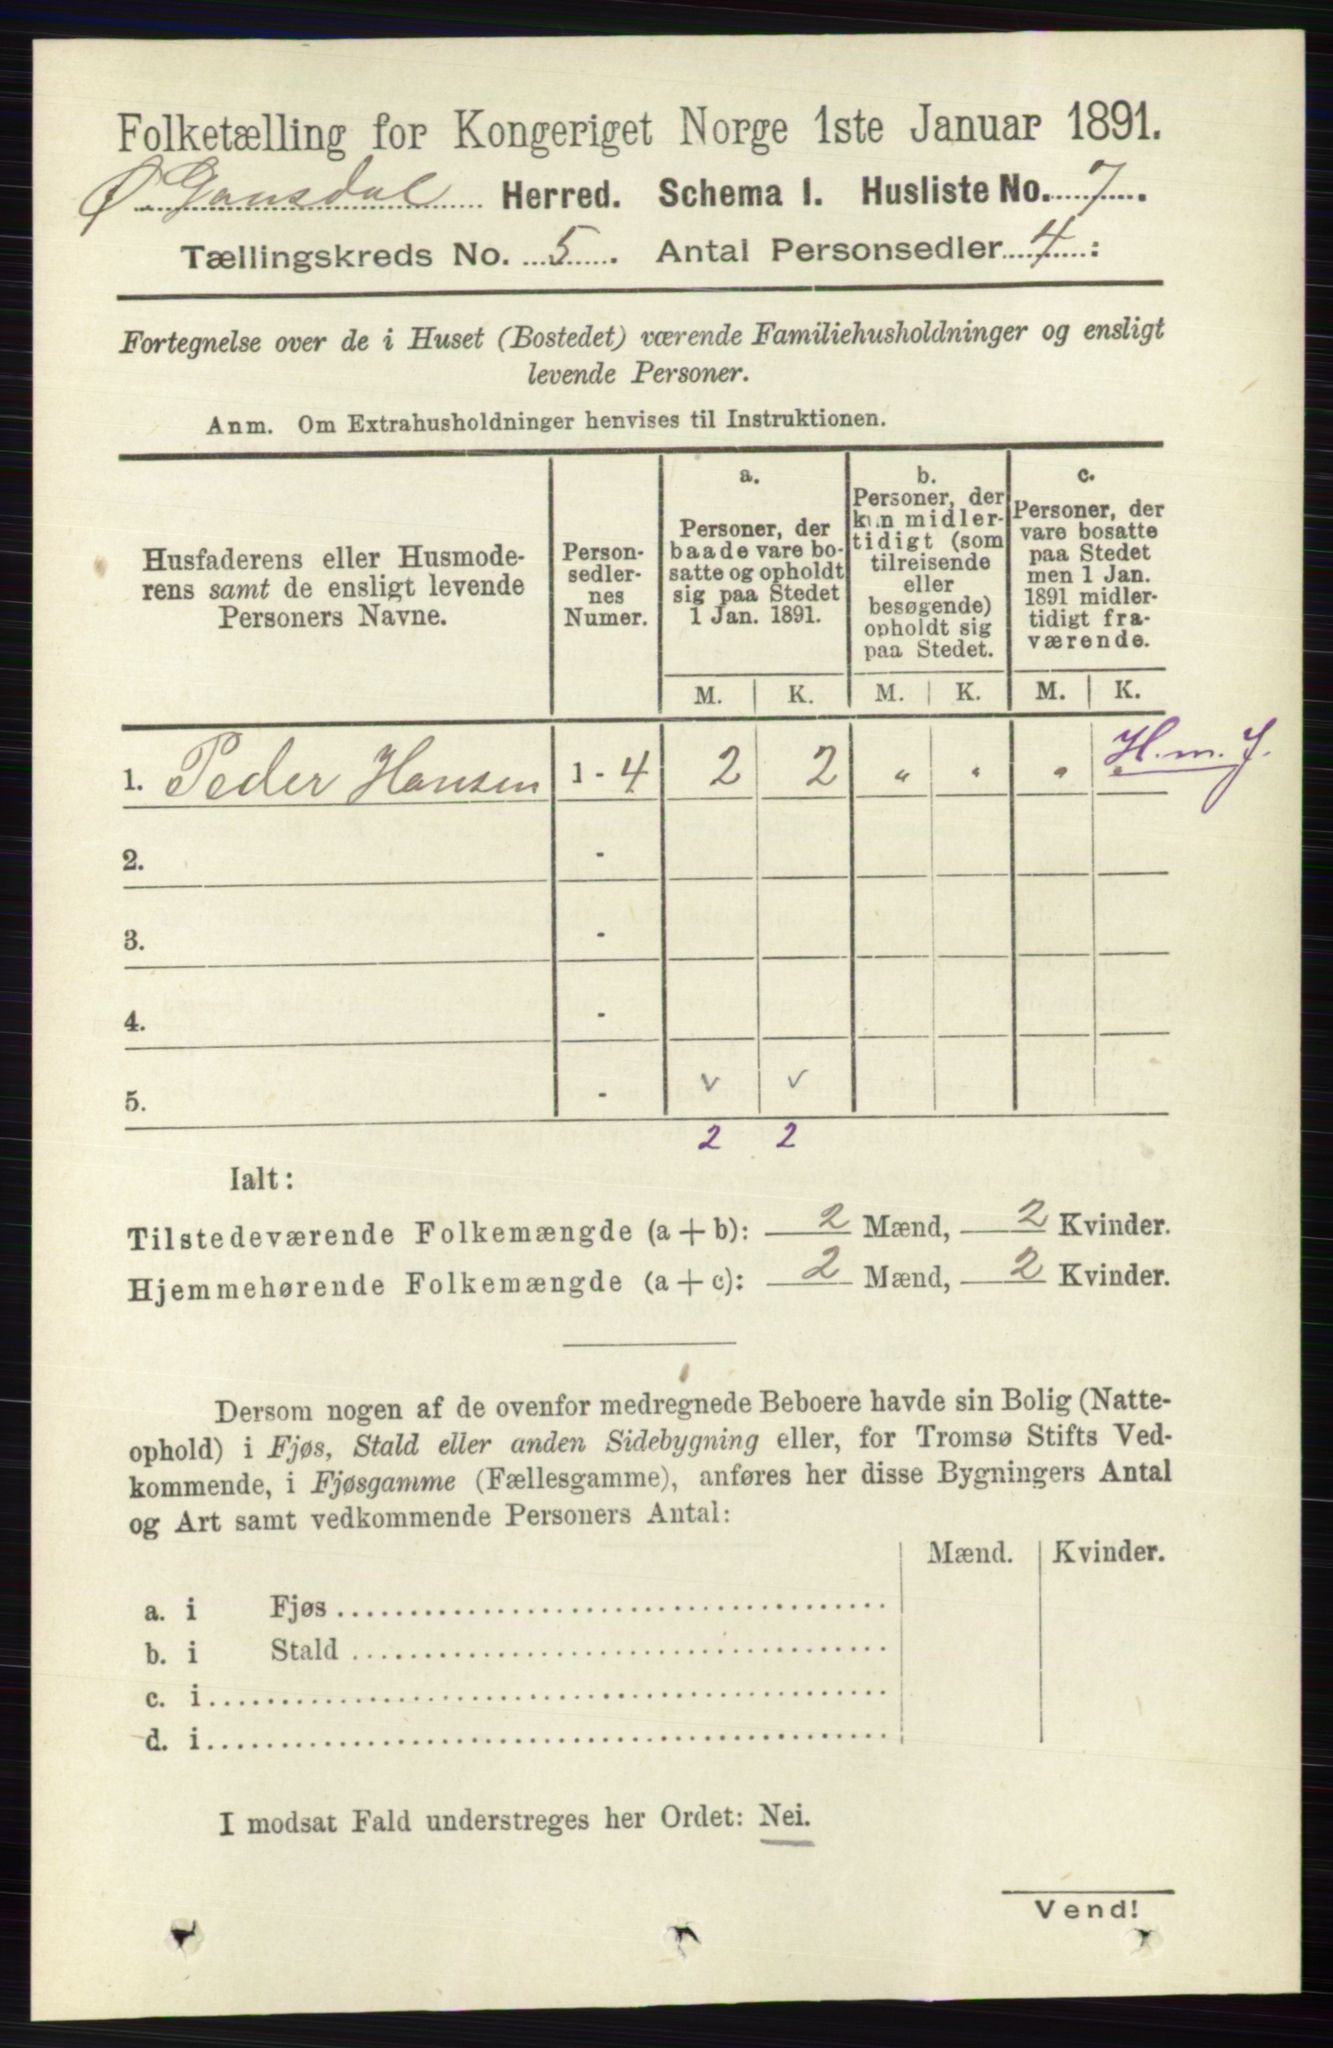 Folketælling for Kongeriget Norge 1ste Januar 1891.
Ø. Gausdal Herred. Schema 1. Husliste No. 7.
Tællingskreds No. 5. Antal Personsedler 4:
Fortegnelse over de i Huset (Bostedet) værende Familiehusholdninger og ensligt
levende Personer.
Anm. Om Extrahusholdninger henvises til Instruktionen.
Husfaderens eller Husmode-
rens samt de ensligt levende
Personers Navne.
Person-
sedler-
nes
Numer.
a.
Personer, der
baade vare bo-
satte og opholdt
sig paa Stedet
1 Jan. 1891.
b.
Personer, der
kun midler-
tidigt (som
tilreisende
eller
besøgende)
opholdt sig
paa Stedet.
c.
Personer, der
vare bosatte
paa Stedet
men 1 Jan.
1891 midler-
tidigt fra-
værende.
M. K. M. K. M. K.
1. Peder Hansen 1 - 4 2 2 " " " H. m. J.
2. -
3. -
4. -
5. - v v
2 2
Ialt:
Tilstedeværende Folkemængde (a + b): 2 Mænd, 2 Kvinder.
Hjemmehørende Folkemængde (a + c): 2 Mænd, 2 Kvinder.
Dersom nogen af de ovenfor medregnede Beboere havde sin Bolig (Natte-
ophold) i Fjøs, Stald eller anden Sidebygning eller, for Tromsø Stifts Ved-
kommende, i Fjøsgamme (Fællesgamme), anføres her disse Bygningers Antal
og Art samt vedkommende Personers Antal:
Mænd. Kvinder.
a. i Fjøs
b. i Stald
c. i
d. i
I modsat Fald understreges her Ordet: Nei.
Vend!